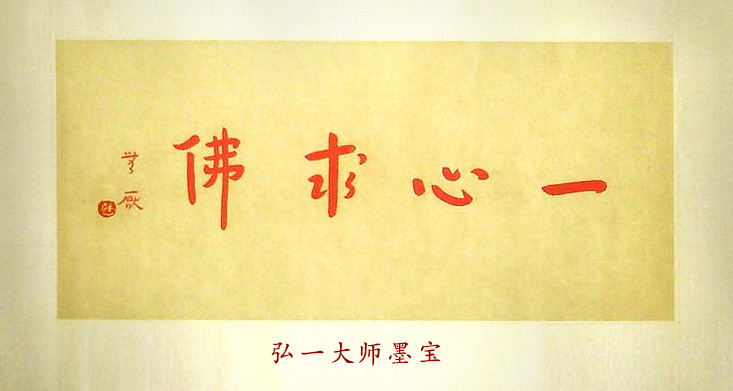 一心求佛
無厭
弘一大师墨宝